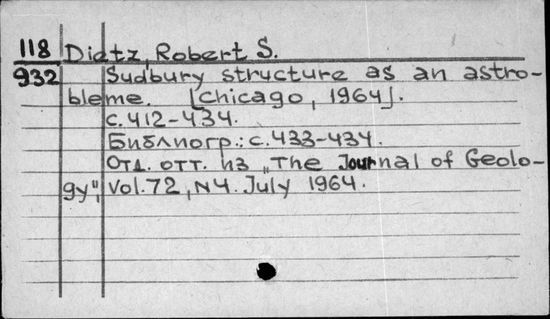 118 Dietz, Robert S.
932 Sudbury structure as an astro-
bleme. [Chicago, 1964].
с.412-434.
Библиогр.: с.433-434.
Отд. отт. из „The Journal of Geolo-
gy", Vol.72, N4. July 1964.